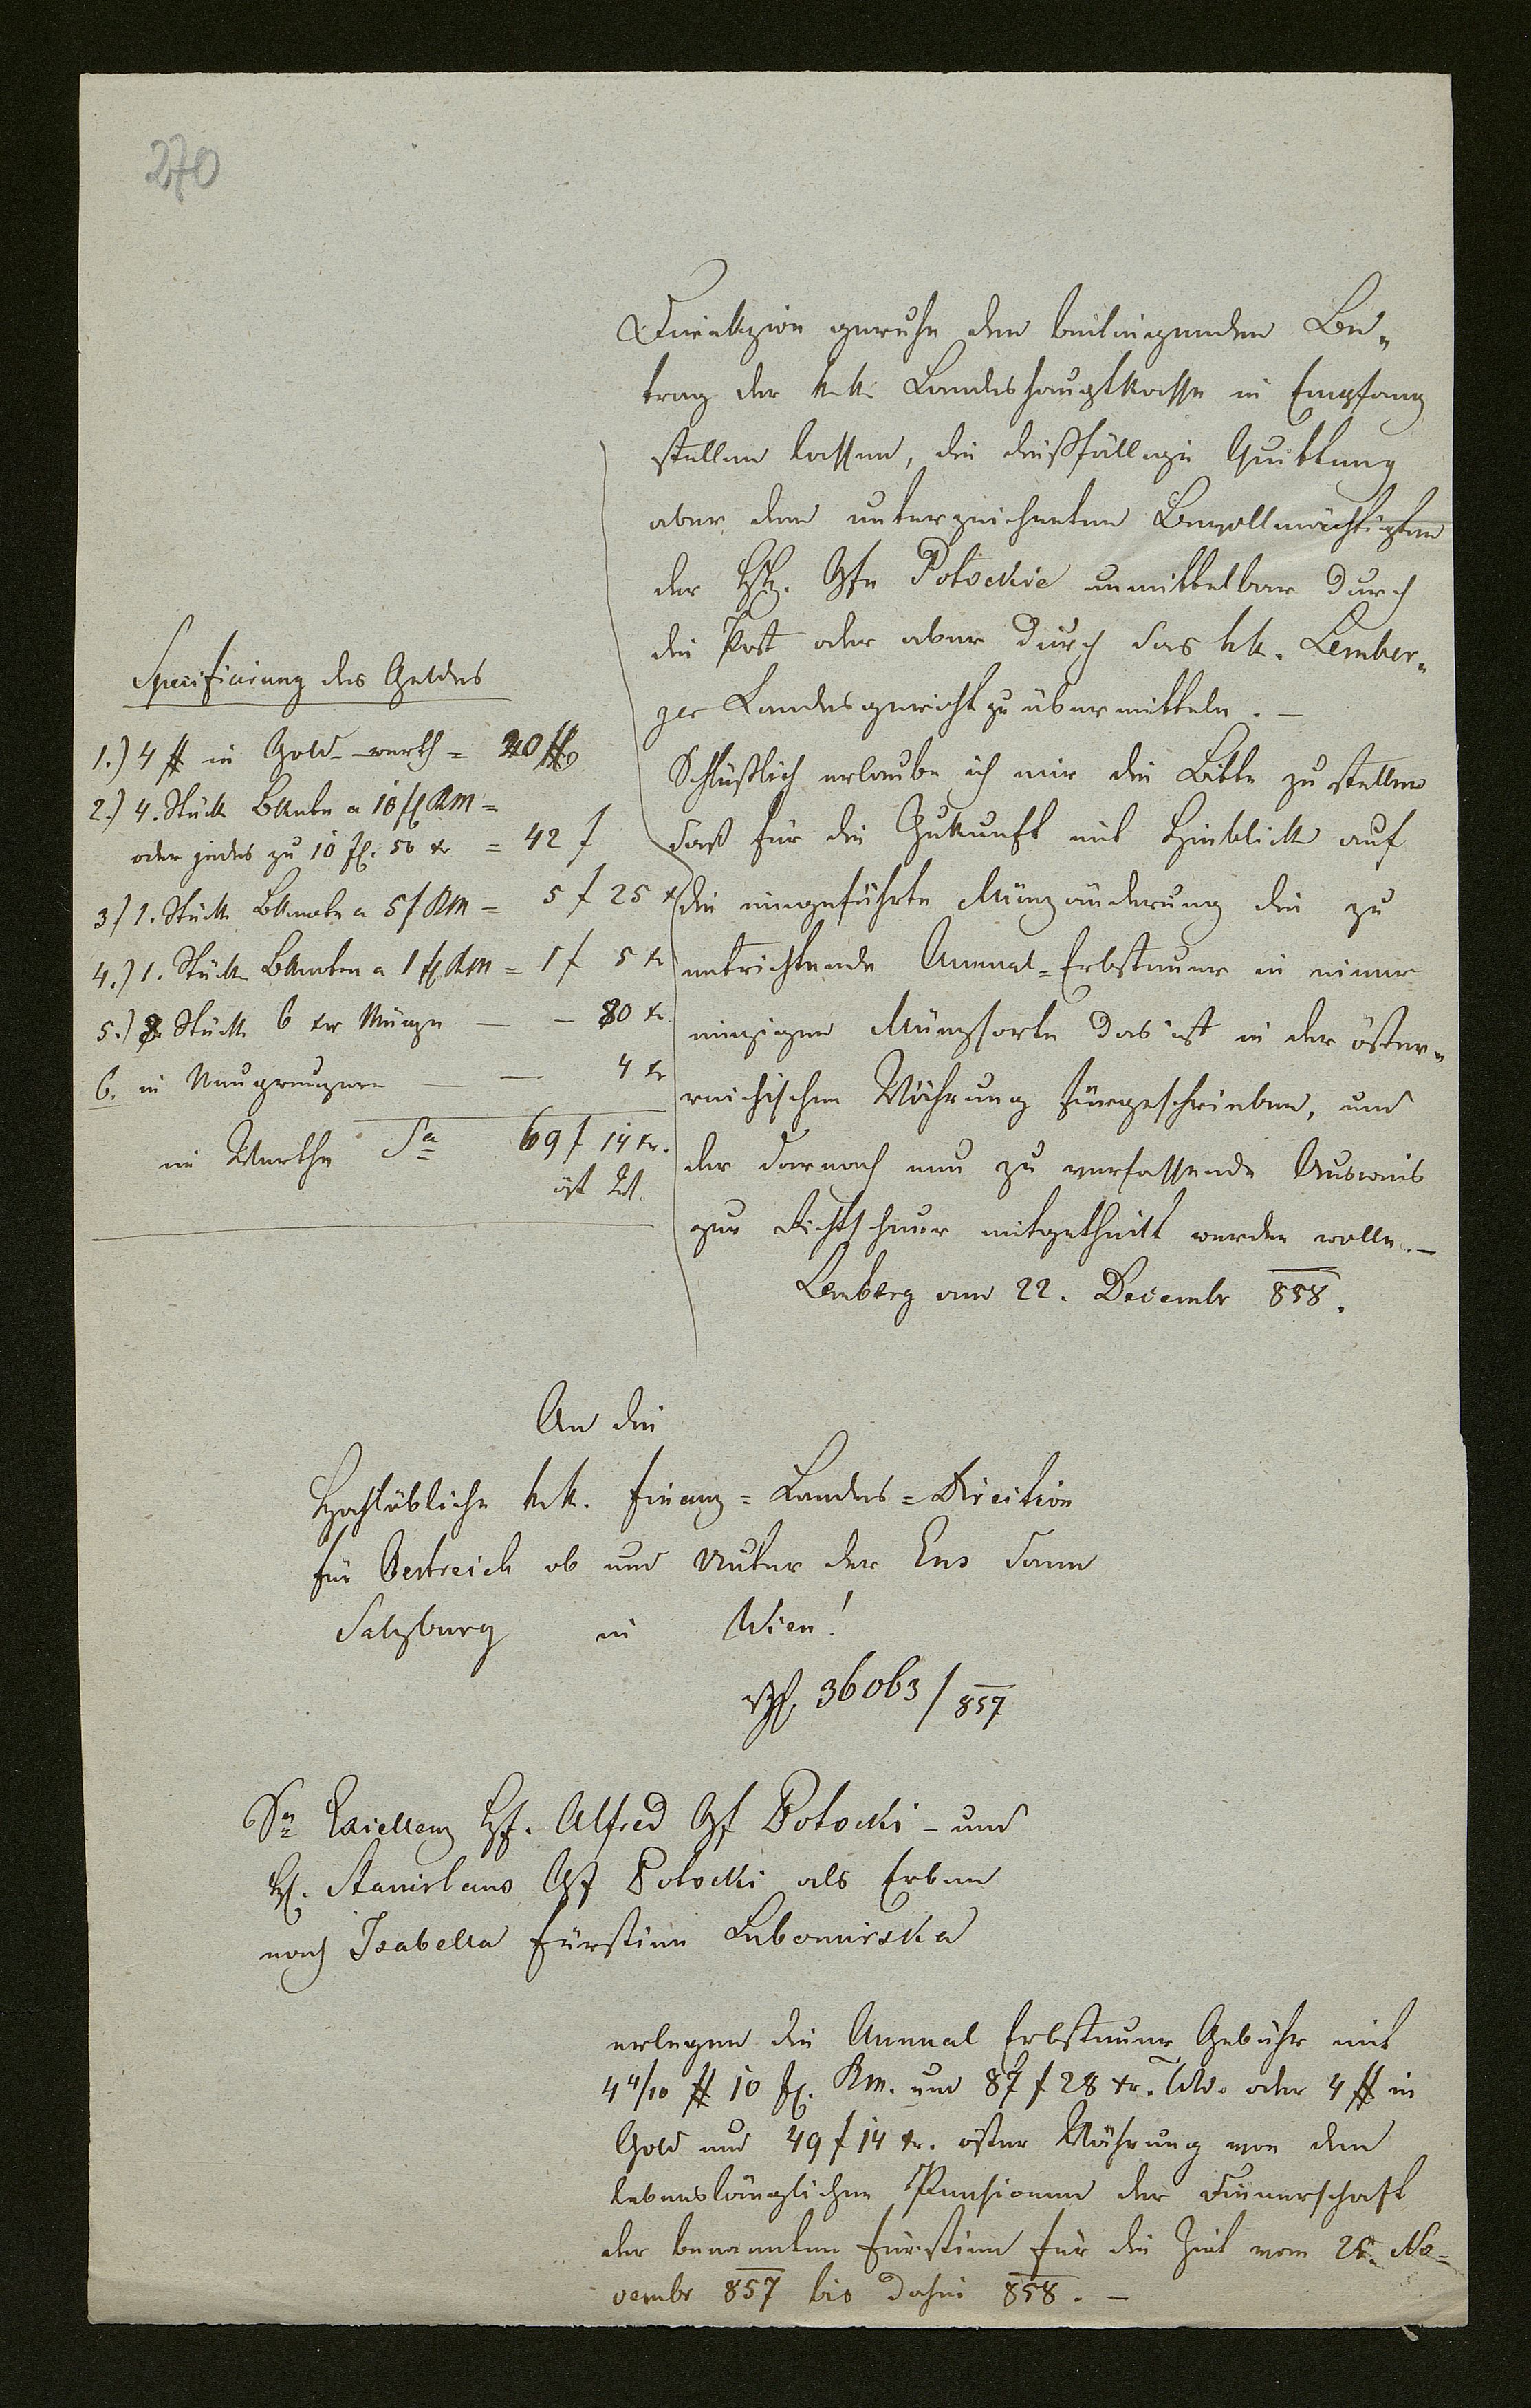 270
Direkzion geruhe den beiliegenden Be-
trag der k.k. Landeshauptkasse in Empfang
stellen lassen, die dießfällige Quittung
aber dem unterzeichneten Bevollmächtigten
der Gfn Potockie unmittelbar durch
die Post oder aber durch das kk. Lember-
ger Landesgericht zu übermitteln. –
Schlüßlich erlaube ich mir die Bitte zu stellen
daß für die Zukunft mit Hinblick auf
die eingeführte Münzänderung die zu
entrichtende Annual-Erbsteuer in einer
einzigen Münzsorte das ist in der öster-
reichischen Währung fürgeschrieben, und
der darnach neu zu verfassende Ausweis
zur Richtschnur mitgetheilt werden wolle. –
Lemberg am 22. Decembr 858.
Specifizirung des Geldes
1.) 4 # in Gold – werth = 20 f
2.) 4. Stück BKnote a 10 fl KM =
oder jedes zu 10 fl. 50 xr = 42 f
3.) 1. Stück BKnote a 5 f KM = 5 f 25 x
4.) 1. Stück BKnoten a 1 fl KM = 1 f 5 xr
5.) 8 Stück 6 xer Münze – – 80 xr.
6. in Neugreuzern – – 4 xr
im Werthe Sa 69 f 14 xr.
öst W.
An die
Hochlöbliche k.k. Finanz-Landes-Direction
für Oestreich ob und unter der Ens dann
Salzburg in Wien!
36063/857
Sr Excellenz H. Alfred Gf Potocki – und
H. Stanislaus Gf Potocki als Erben
nach Isabella Fürstinn Lubomirska
erlegen die Annual Erbsteuer Gebühr mit
4 4/10 # 10 fl. KM. und 87 f 28 xr. WW. oder 4 # in
Gold und 49 f 14 xr. öster Währung von den
lebenslänglichen Pensionen der Dienerschaft
der benannten Fürstinn für die Zeit vom 25. No-
vembr 857 bis dahin 858. –